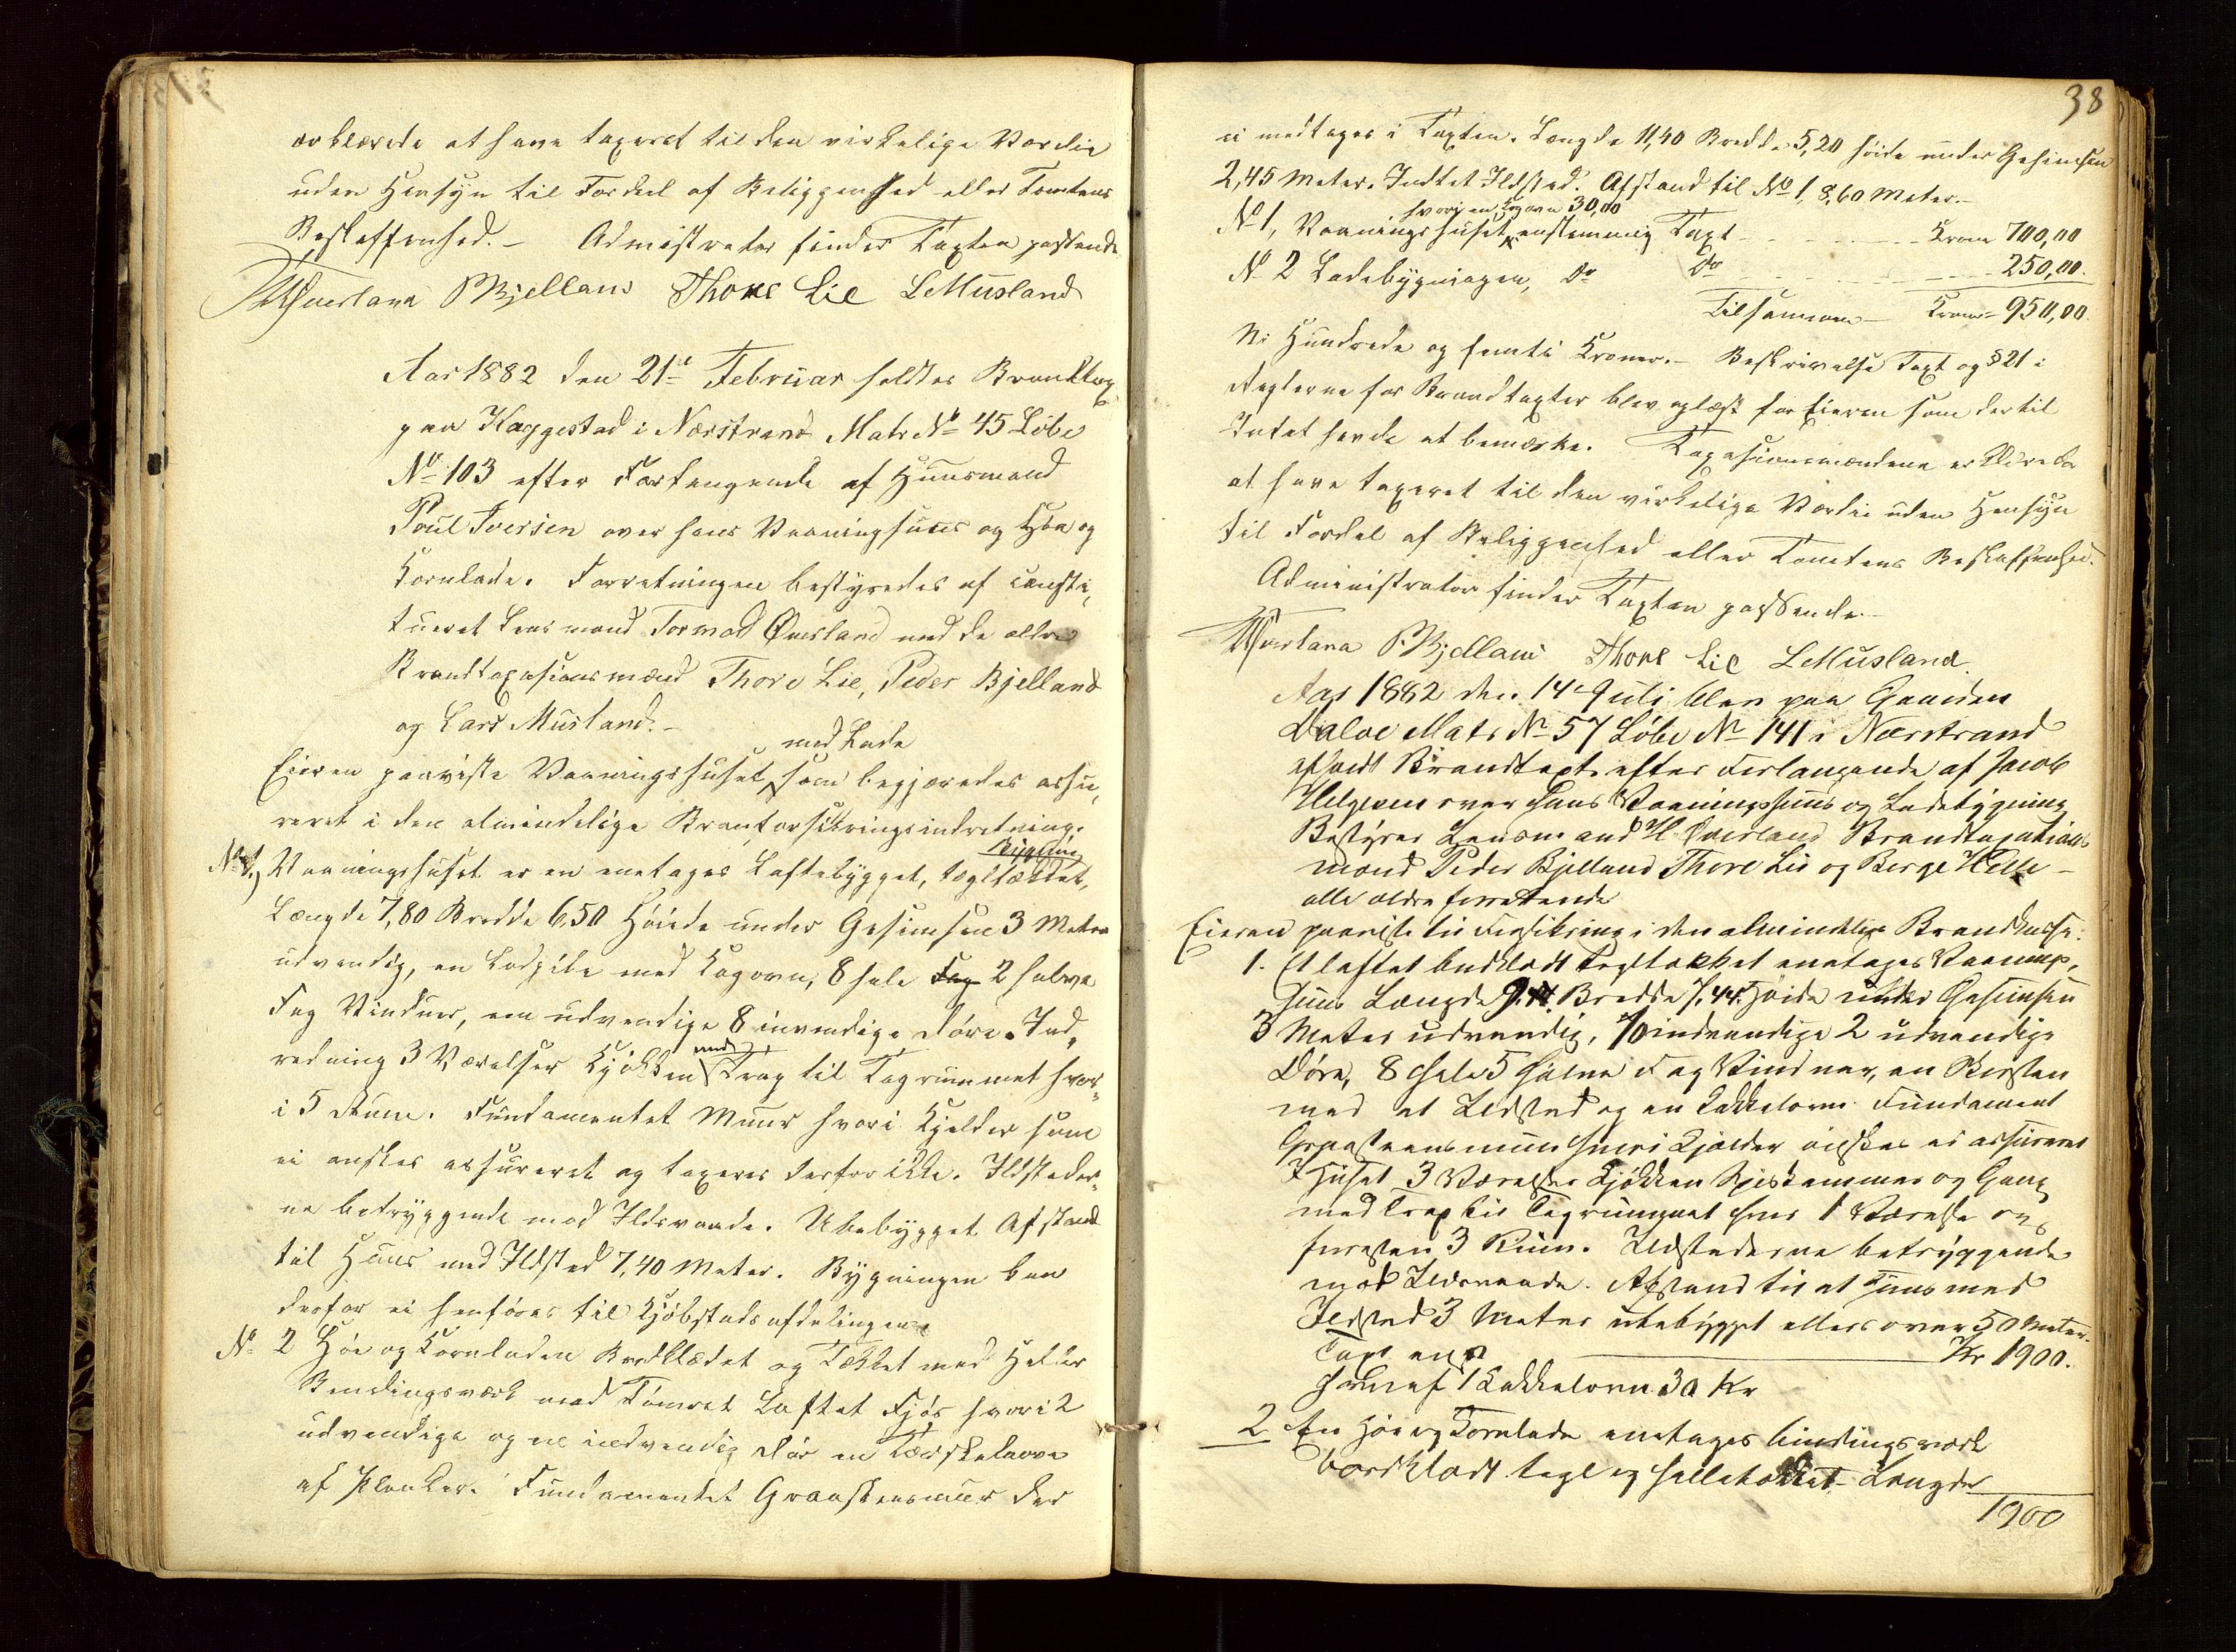 erklærede at have taxeret til den virkelige Værdie
uden Hensyn til Fordeel af Beliggenhed eller Tomtens
Beskaffenhed. – Admistrator finder Taxten passende
PBjelland Thore Lie LMusland
Aar 1882 den 21de Februar holdtes Brandtax
paa Haggestad i Nærstrand Matr No 45 Löbe
No 103 efter Forlangende af Huusmand
Poul Iversen over hans Vaaningshuus og Höe og
Kornlade. Forretningen bestyredes af consti,
tueret Lensmand Tormod Øverland med de ældre
Brandtaxasionsmænd Thore Lie, Peder Bjelland
og Lars Musland. –
med Lade
Eieren paaviste Vaaningshuset, som begjæredes assu,
reret i den almindelige Brandforsikringsindretning.
No 1,) Vaaningshuset er en enetages Loftebygget, tegltækket,
Længde 7,80 Bredde 6,50 Höide under Gesimsen 3 Meter
udvendig, en Ladpibe med Kogovn, 8 hele Fag 2 halve
Fag Vinduer, een udvendige 8 invendige Döre. Ind„
med
redning 3 Værelser Kjökken Trap til Tagrummet hvor„
i 5 Rum. Fundamentet Muur hvori Kjelder som
ei önskes assureret og taxeres derfor ikke. Ildsteder„
ne betryggende mod Ildsvaade. Ubebygget Afstand
til Huus med Ildsted 7,40 Meter. Bygningen kan
derfor ei henföres til Kjöbstadsafdelingen
No 2 Höe og Kornladen Bordklædet og Tækket med Heller
Bindingsværk med Tömret Loftet Fjös hvori 2
udvendige og en indvendig Dör en Tærskelaave
af Planker. Fundamentet Graasteensmuur der
38
ei medtages i Taxten. Længde 11,40 Bredde 5,20 höide under Gesimsen
2,45 Meter. Indtet Ildsted. Afstand til No 1, 8,60 Meter. –
hvori en Kogovn 30,00
No 1, Vaaningshuset, enstemmig Taxt – – – Kroner 700,00
No 2 Ladebygningen, Do Do – – – 250,00.
Tilsammen – Kroner 950,00.
Ni Hundrede og femti Kroner. – Beskrivelse Taxt og § 21 i
Reglerne for Brandtaxter blev oplæst for Eieren som dertil
Intet havde at bemærke. Taxasionsmændene erklærede
at have taxeret til den virkelige Værdie uden Hensyn
til Fordel af Beliggenhed eller Tomtens Beskaffenhed.
Administrator finder Taxten passende –
P.Bjelland Thore Lie LMusland.
Aar 1882 den 14de Juli blev paa Gaarden
Dalve Matr No 57 Löbe No 141 i Nærstrand
afholdt Brandtaxt efter Forlangende af Jacob
Helgesen over hans Vaaningshuus og Ladebygning
Bestyrer Lensmand H. Øverland Brandtaxations
mænd Peder Bjelland Thore Lie og Berge Helle –
alle ældre forretende
Eieren paaviste til Forsikring i den almindelige Brandkasse:
1. Et loftet bordklædt tegltækket enetages Vaanings,
huus Længde 9.44. Bredde 7.44. Höide under Gesimsen
3 Meter udvendig, 10 indvendige 2 udvendige
Döre, 8 hele 5 halve Fag Vinduer, en Skorsten
med et Ildsted og en Kakkelovn Fundament
Graasteensmuur hvori Kjælder önskes ei assureret
I Huset 3 Værelser Kjökken Spiskammer og Gang
med Trap til Tagrummet hvor 1 Værelse og
foresten 3 Rum. Ildstederne betryggende
mod Ildsvaade. Afstand til et Huus med
Ildsted 3 Meter ubebygget ellers over 50 Meter.
Taxt – Kr 1900.
heraf 1 Kakkelovn 30 Kr
2 En Höe og Kornlade enetages bindingsværk
bordklædt tegl og helletækket – Længde
1900